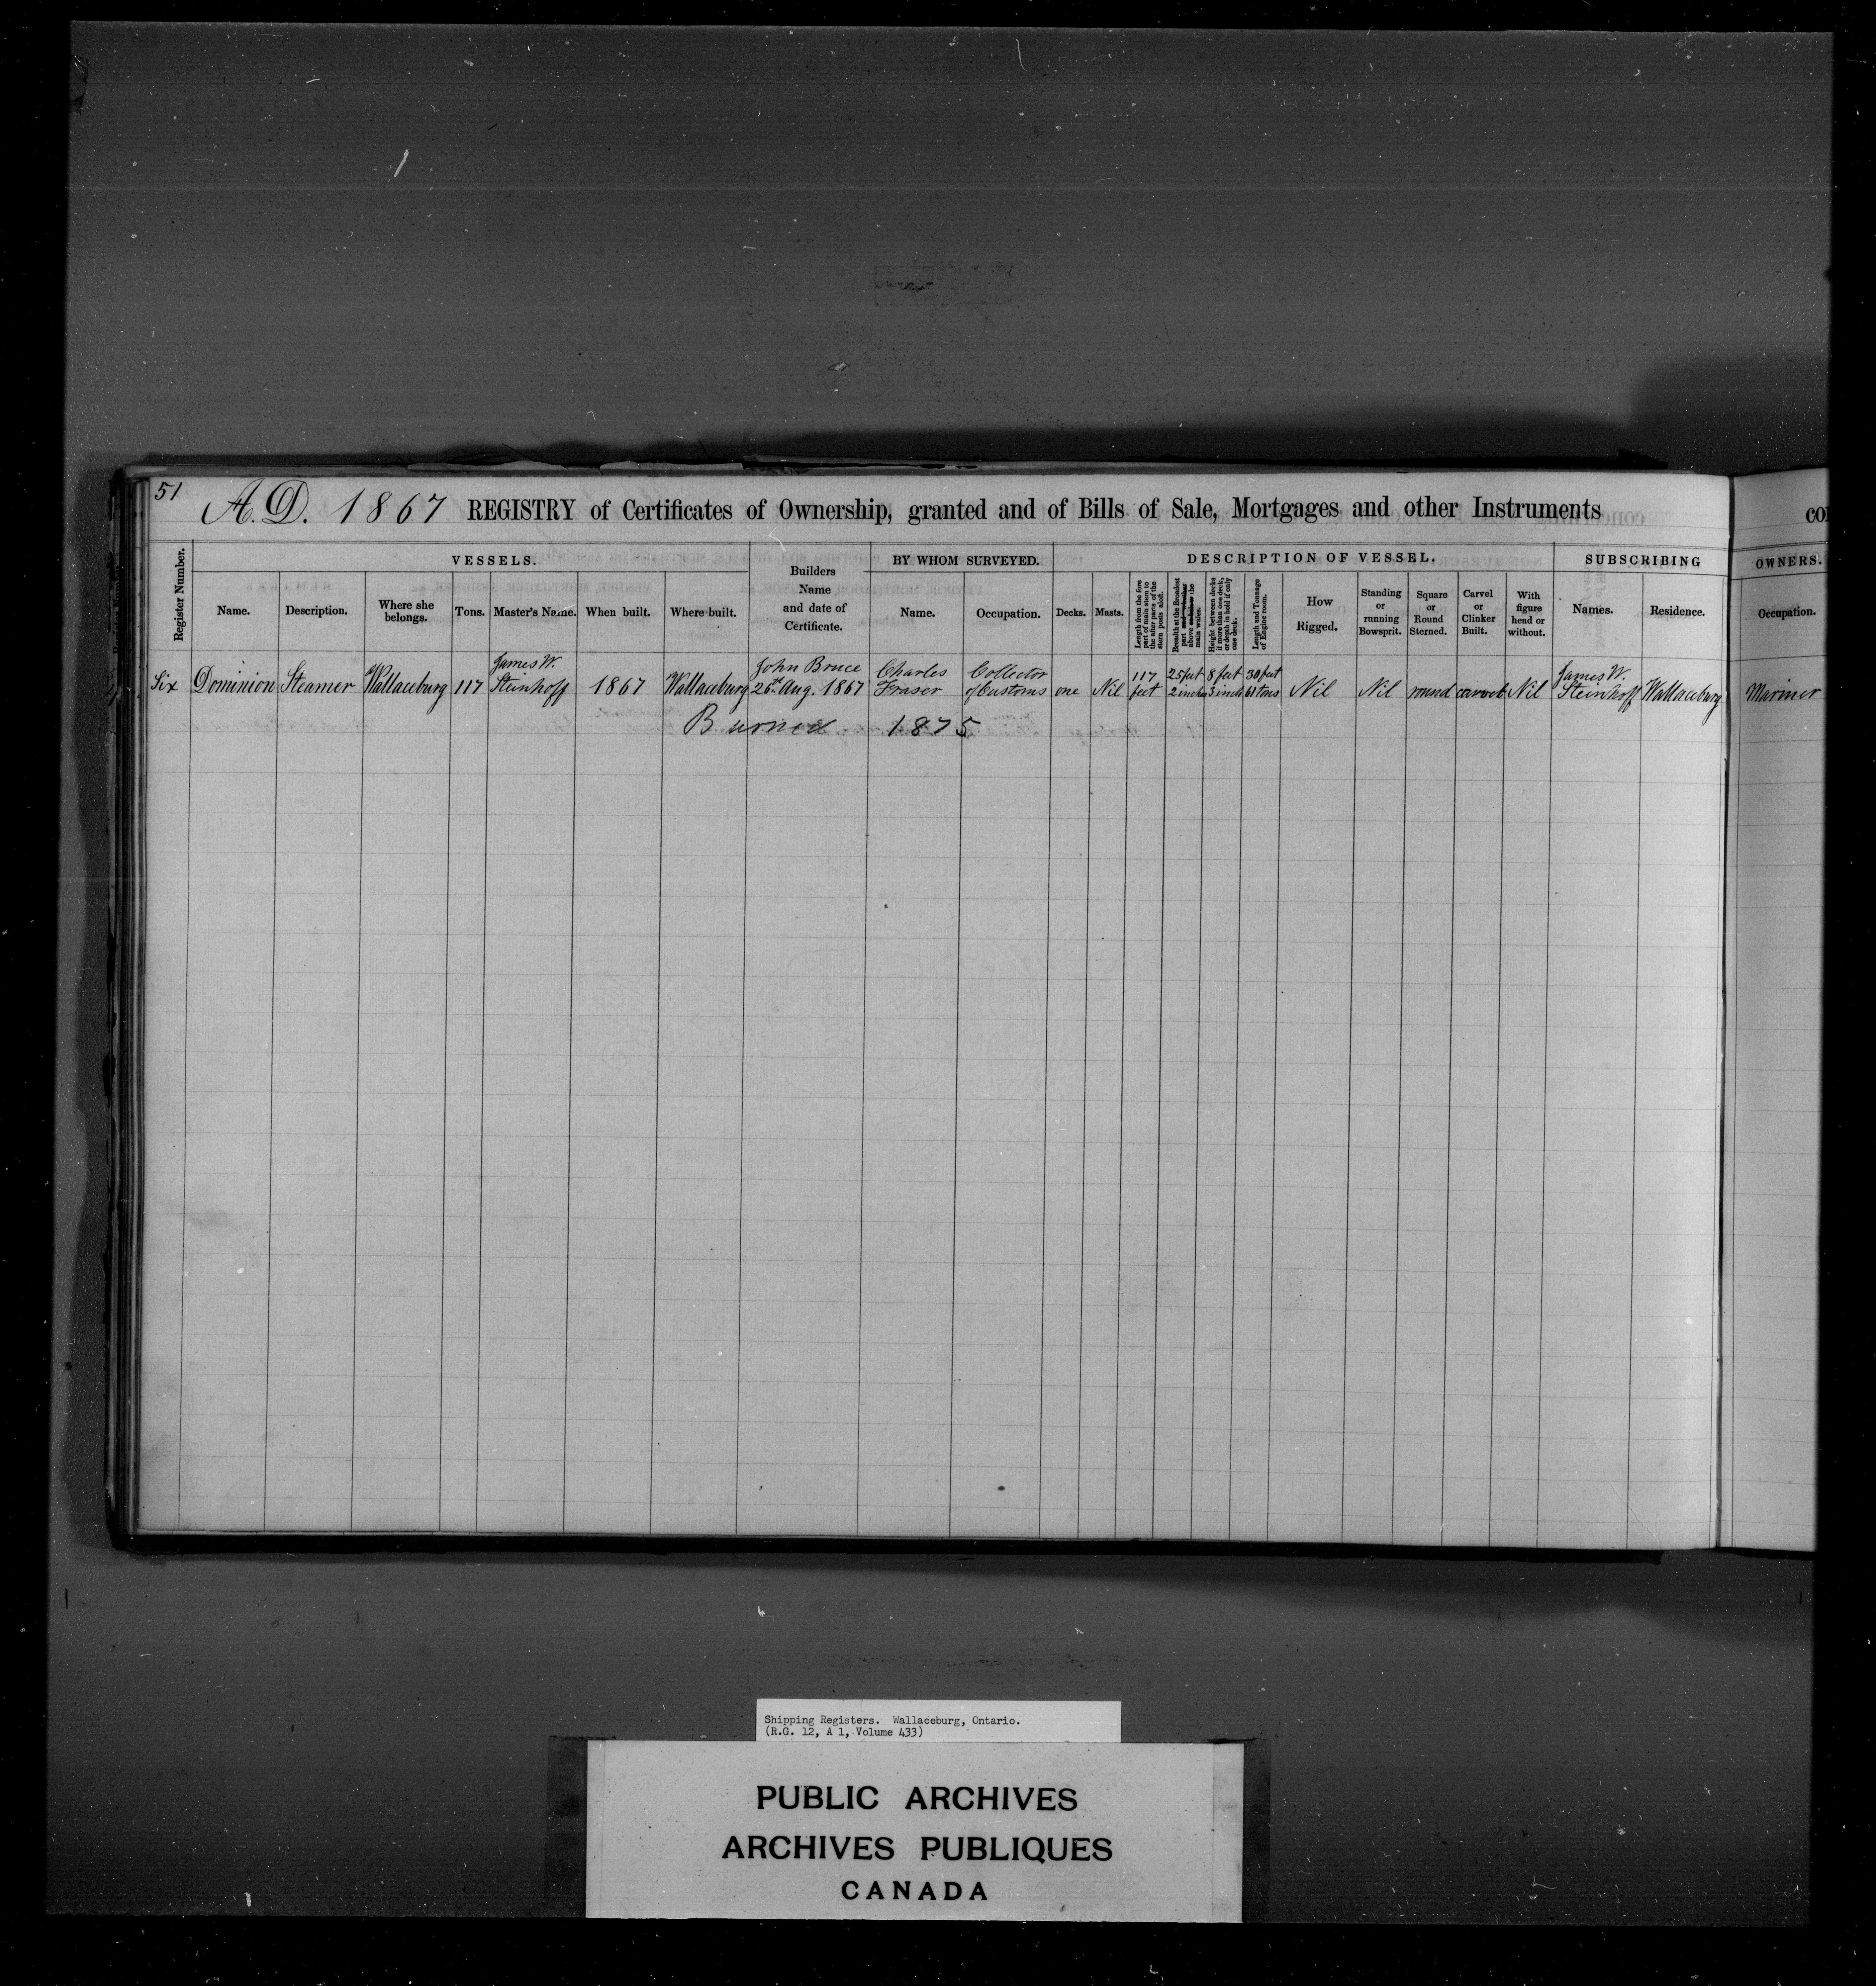 51
A.D. 1867 REGISTRY of Certificates of Ownership, granted and of Bills of Sale, Mortgages and other Instruments
CO
Register Number.
VESSELS.
Name.
Description.
Where she
belongs.
Tons.
Master's Name.
When built.
Where built.
Builders
Name
and date of
Certificate.
BY WHOM SURVEYED.
Name.
Occupation.
DESCRIPTION OF VESSEL.
Decks.
Masts.
Length from the fore
part of main stem to
the after parts of the
stern posts aloft.
Breadth at the Broadest
part
above the
main wales.
Height between decks
if more than one deck,
or depth in hold if only
one deck.
Length and Tonnage
of Engine room.
How
Rigged.
Standing
or
running
Bowsprit.
Square
or
Round
Sterned.
Carvel
or
Clinker
Built.
With
figure
head or
without.
SUBSCRIBING
Names.
Residence.
OWNERS.
Occupation.
Six
Dominion
Steamer
Wallaceburg
117
James W.
Steinhoff
1867
Wallaceburg
John Bruce
26th Aug. 1867
Charles
Fraser
Collector
of Customs
one
Nil
117
feet
25 feet
2 inches
8 feet
3 inch
30 feet
61 tons
Nil
Nil
round
carvel
Nil
James W.
Steinhoff
Wallaceburg
Mariner
Burned 1875
Shipping Registers. Wallaceburg, Ontario.
(R.G. 12, A 1, Volume 433)
PUBLIC ARCHIVES
ARCHIVES PUBLIQUES
CANADA